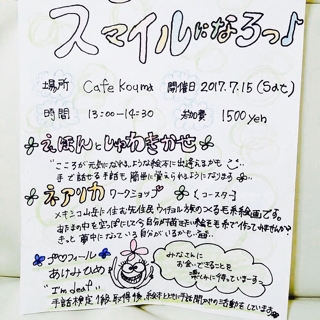 スマイルになろっ♪
場所 Cafe Kouma 開催日 2017.7.15 (Sat)
時間 13:00-14:30 参加費 1500yen
えほんとしゅわきかせ
"こころが元気になれる。ような絵本に出逢えるかも
手で話せる手話も簡単に覚えられるようになります
ネアリカ ワークショップ 【コースター】
メキシコ山岳に住む先住民ウイチョル族のつくる毛糸絵画です。
あたまの中を空っぽにして
きっと夢中になっている自分がいるかも
プロフィール
あけみひめ
"I'm deaf"
手話検定1級取得後、絵本とともに手話 活動をしています
みなさんに
お会いできることを
楽しみに待っていまーす